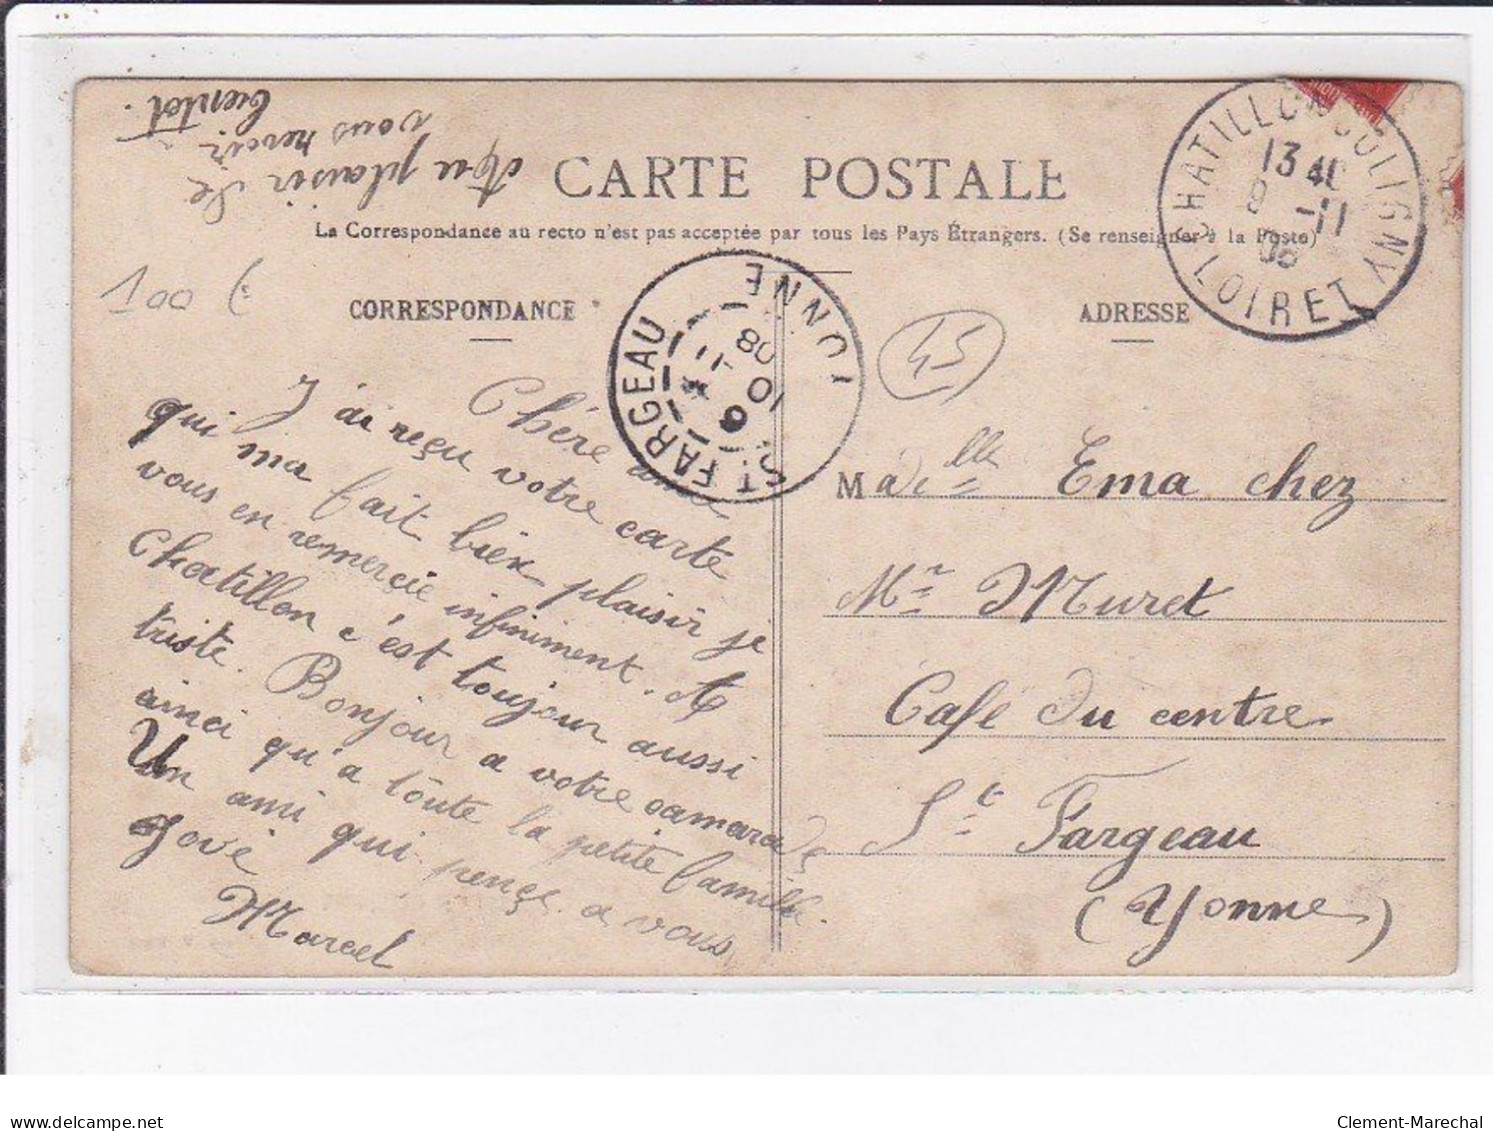 Au plaisir de
vous revoir
bientot.
CARTE POSTALE
La Correspondance au recto n'est pas acceptée par tous les Pays Étrangers. (Se renseigner à la Poste)
CHATILLON COLIGNY
13
8 -11
08
LOIRET
100
CORRESPONDANCE
ADRESSE
ST FARGEAU
YONNE
6
10 -11
08
45
Chére amie
J'ai reçu votre carte
qui ma fait bien plaisir je
vous en remercie infiniment. A
Chatillon c'est toujour aussi
triste. Bonjour a votre camarade
ainci qu'a toute la petite famille.
Un ami qui pense a vous
Marcel
Madelle Ema chez
Mr Muret
Café du centre
St Fargeau
(Yonne)
Clement-Marechal